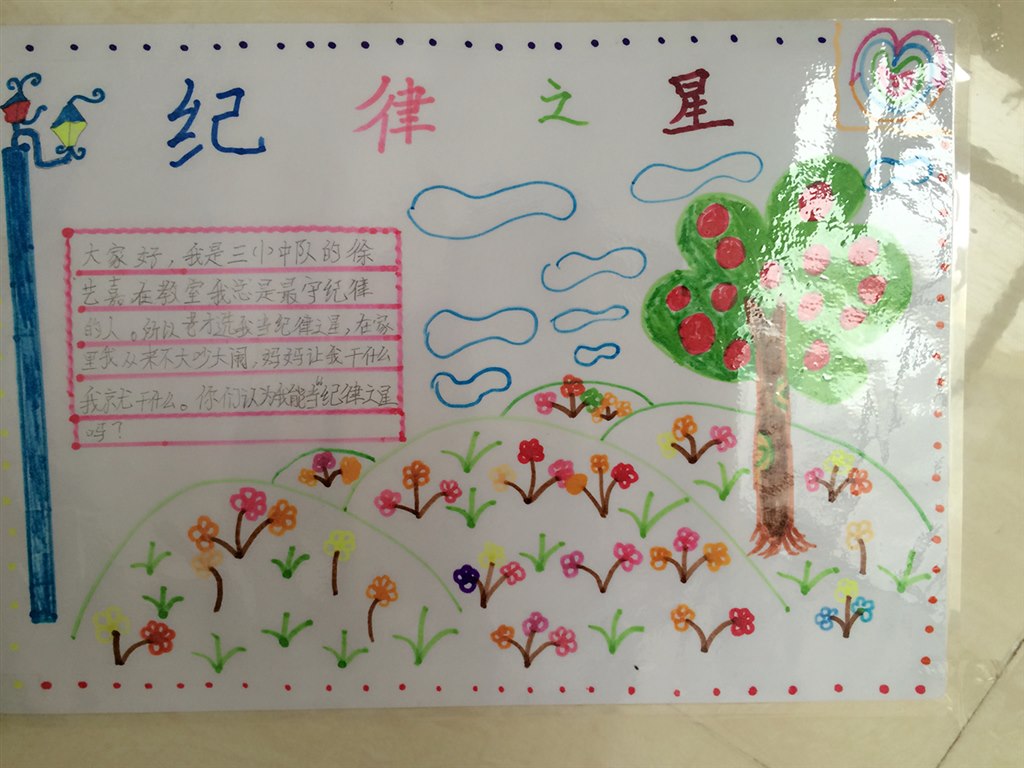 纪律之星
大家好，我是三小中队的徐
艺嘉在教室我总是最守纪律
的人。所以老才选我当纪律之星，在家
里我从来不大吵大闹，妈妈让我干什么
我就干什么。你们认为我能当“纪律之星
吗？